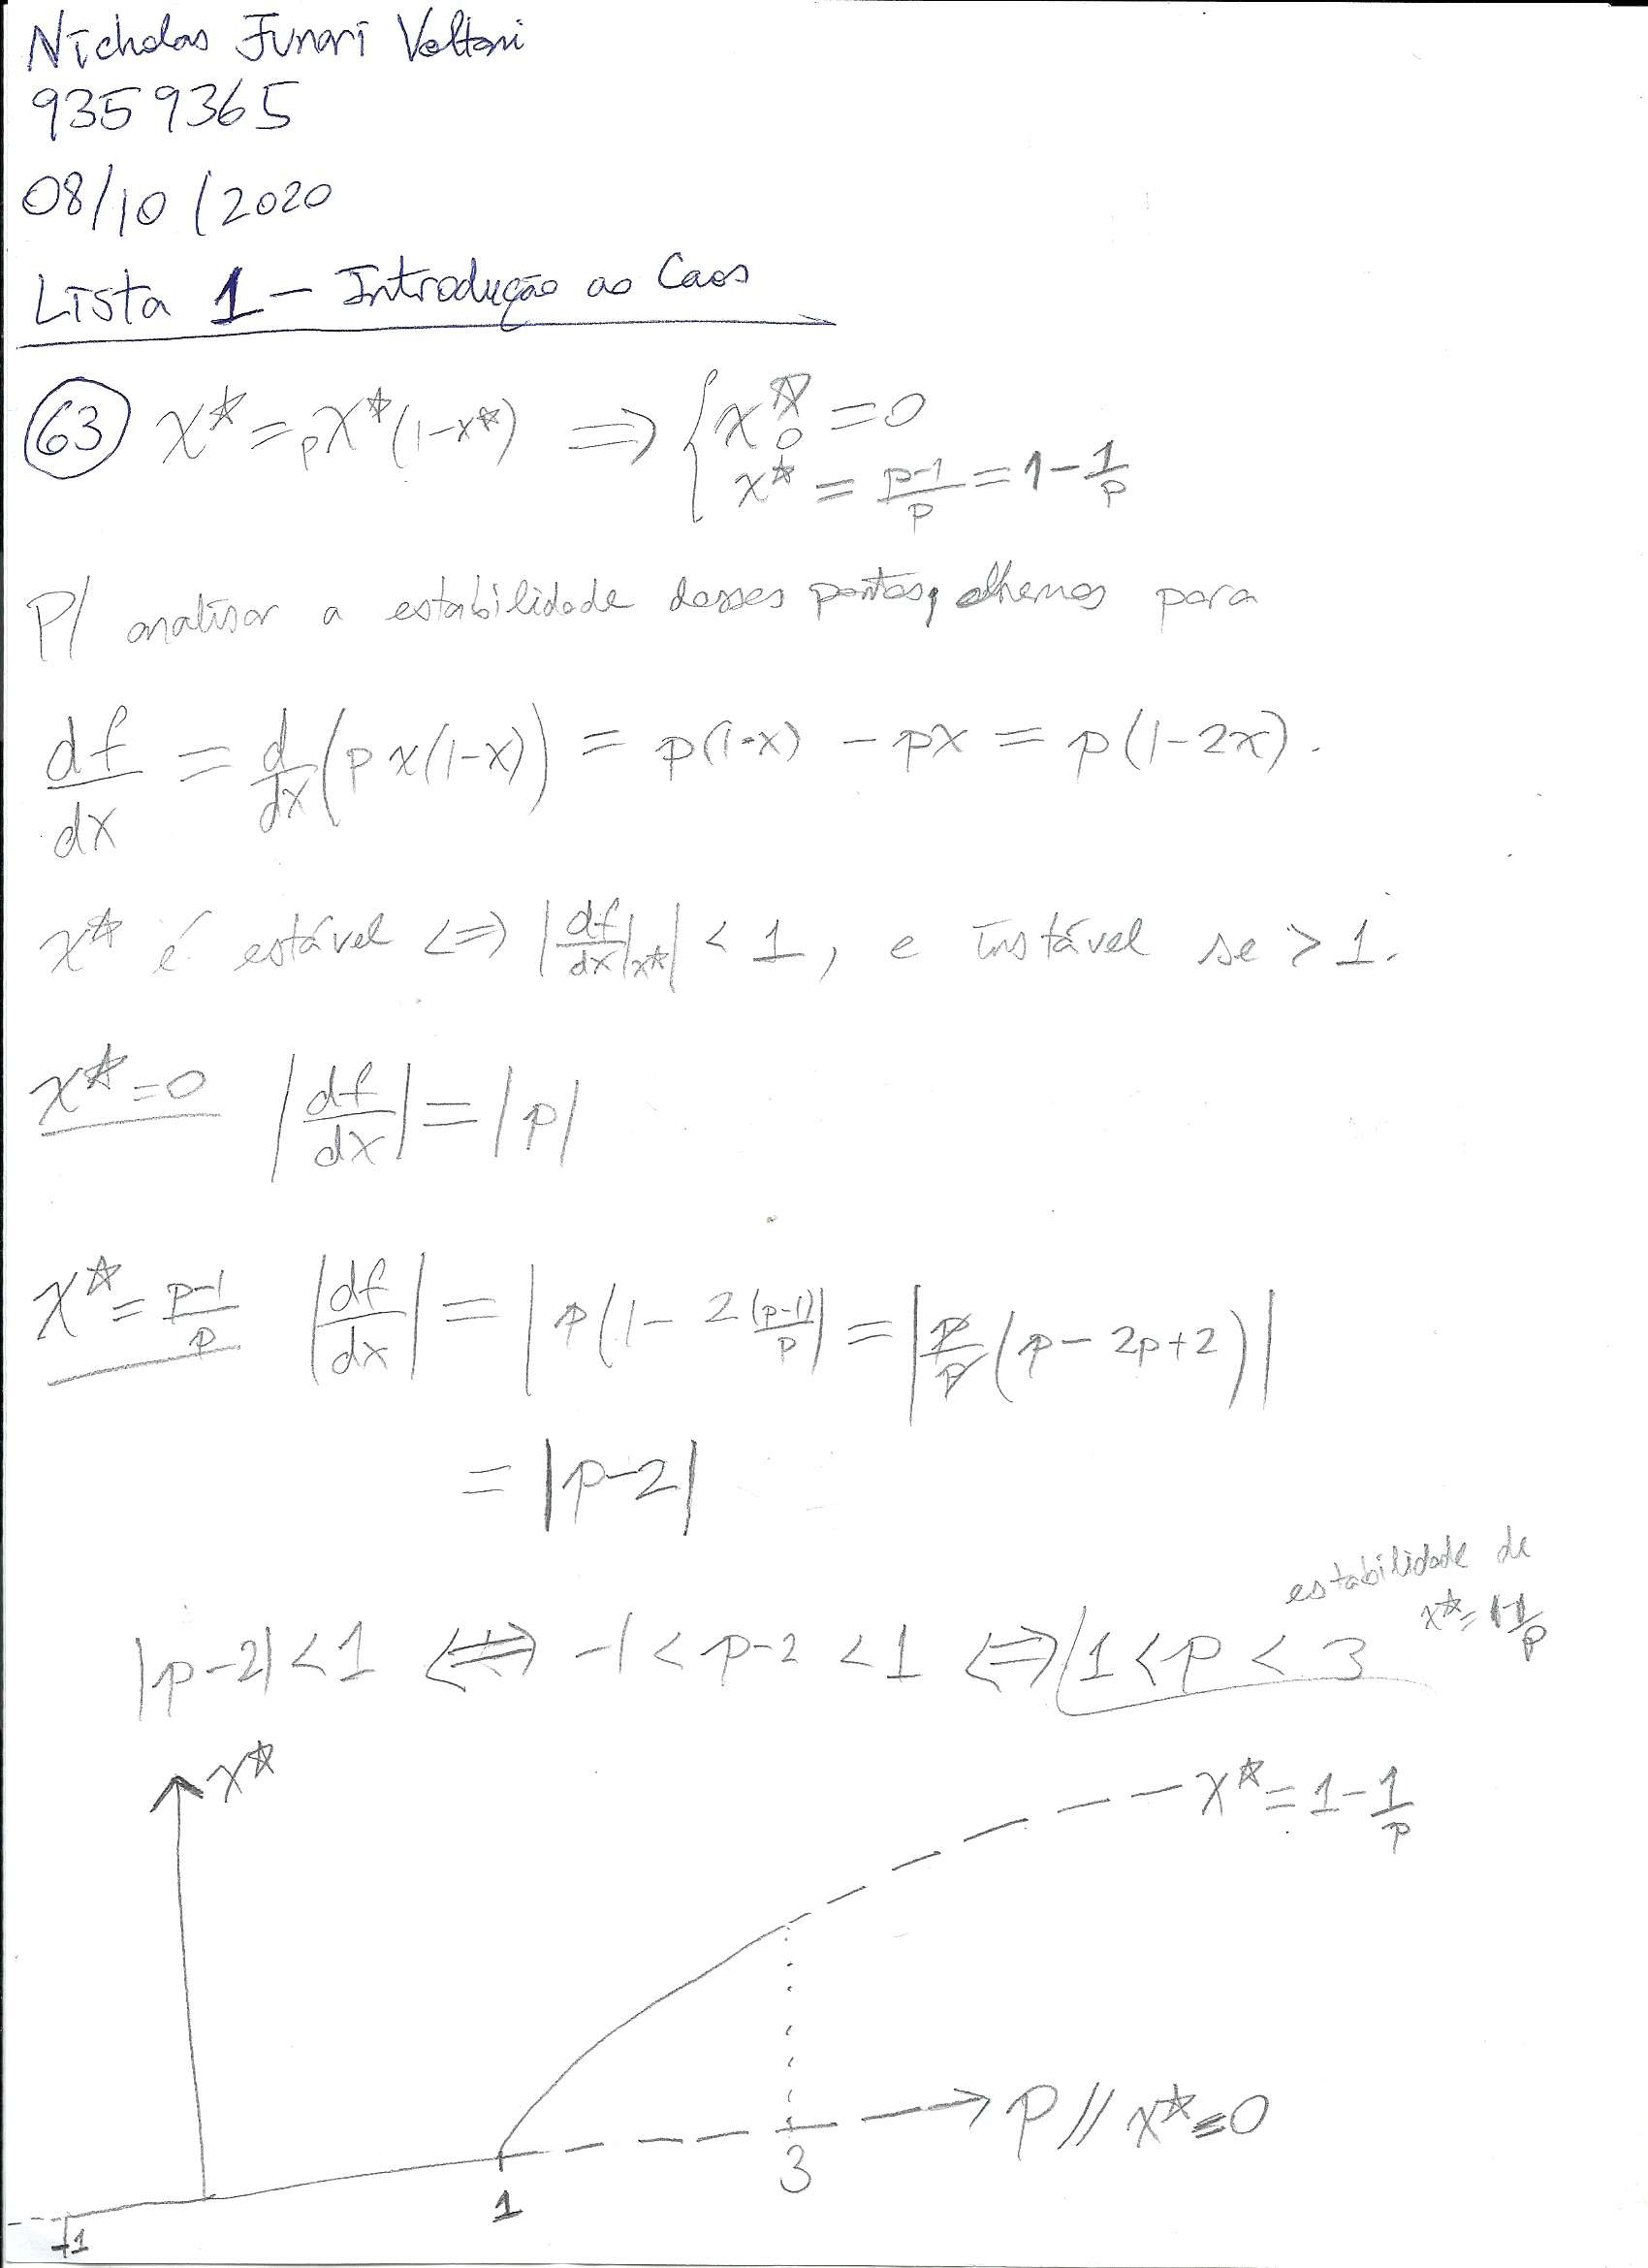 Nicholas Funari Voltani
9359365
08/10/2020
Lista 1 – Introdução ao Caos
63 x* = px*(1-x*) ⟹ { x*₀ = 0
x* = (p-1)/p = 1 - 1/p
P/ analisar a estabilidade desses pontos, olhemos para
df/dx = d/dx (p x(1-x)) = p(1-x) - px = p(1-2x).
x* é estável <=> |df/dx|x*| < 1, e instável se > 1.
x* = 0 |df/dx| = |p|
x* = (p-1)/p |df/dx| = |p(1 - 2(p-1)/p| = |p/p (p - 2p + 2)|
= |p-2|
estabilidade de
x* = 1-1/p
|p-2| < 1 <=> -1 < p-2 < 1 <=> 1 < p < 3
x*
x* = 1 - 1/p
p // x* = 0
3
1
-1